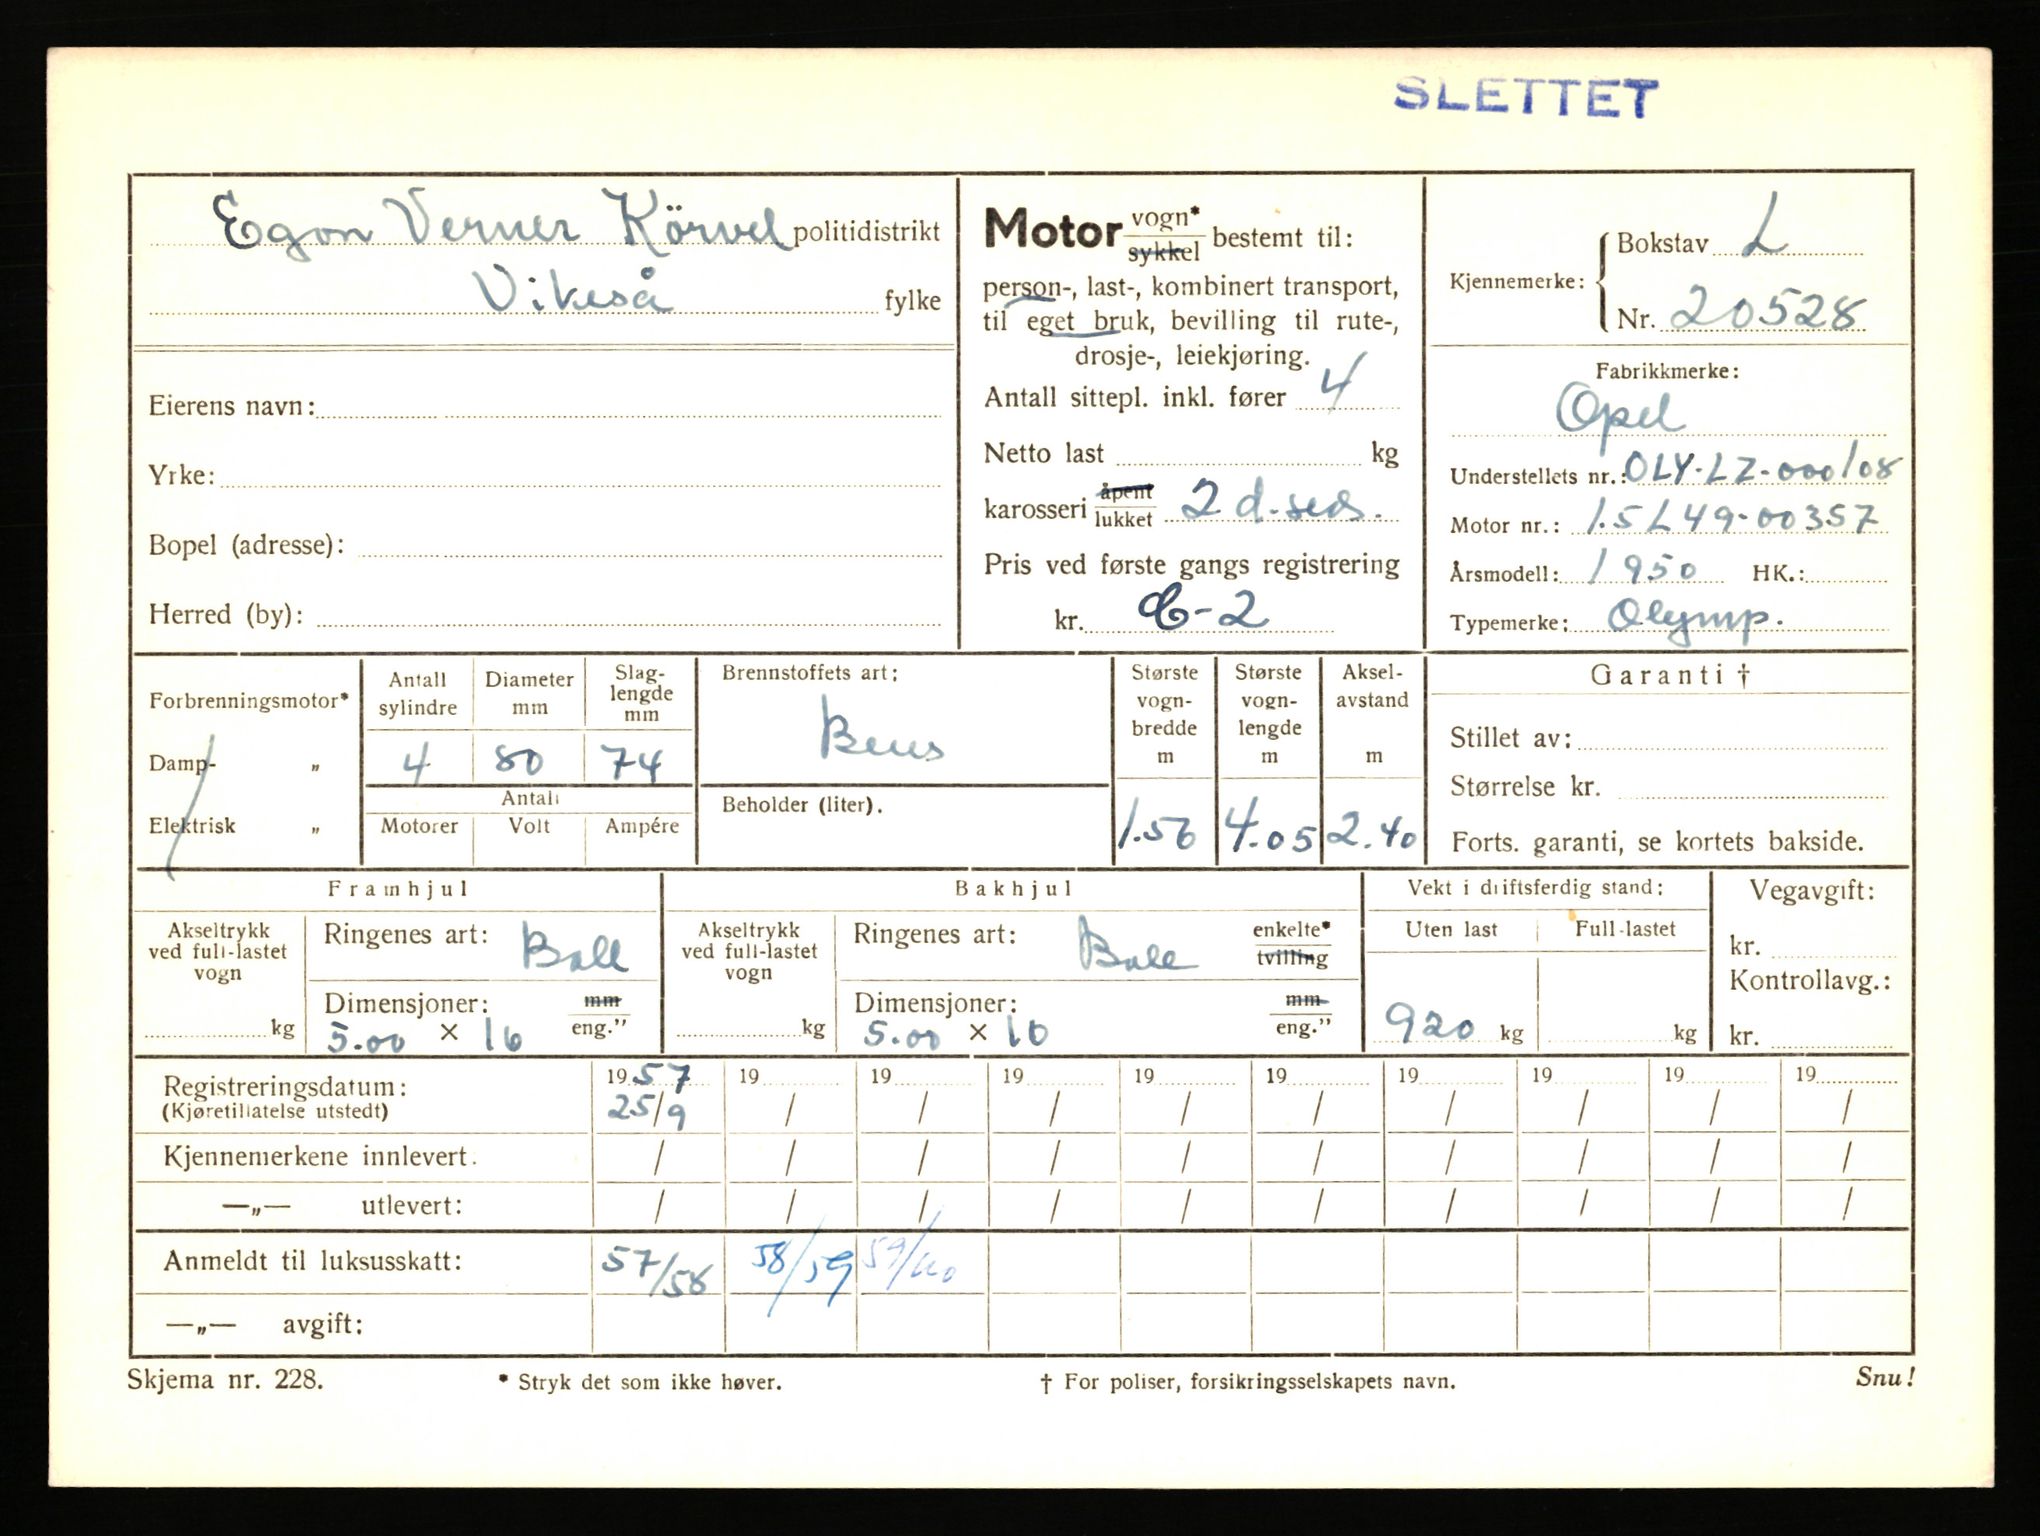 SLETTET
Egon Verner Körvel politidistrikt
Vikeså fylke
Eierens navn:
Yrke:
Bopel (adresse):
Herred (by):
Motor vogn* sykkel bestemt til:
person-, last-, kombinert transport,
til eget bruk, bevilling til rute-,
drosje-, leiekjøring.
Antall sittepl. inkl. fører 4
Netto last kg
karosseri åpent lukket 2 d. sed.
Pris ved første gangs registrering
kr. C-2
Kjennemerke: Bokstav L
Nr. 20528
Fabrikkmerke:
Opel
Understellets nr.: OLY-LZ-000108
Motor nr.: 1.5L49-00357
Årsmodell: 1950 HK.:
Typemerke: Olymp.
Forbrenningsmotor*
Damp- „
Elektrisk „
Antall sylindre
Diameter mm
Slag-lengde mm
4 80 74
Antall
Motorer Volt Ampére
Brennstoffets art:
Bens
Beholder (liter).
Største vogn-bredde m
Største vogn-lengde m
Aksel-avstand m
1.56 4.05 2.40
Garanti †
Stillet av:
Størrelse kr.
Forts. garanti, se kortets bakside.
Framhjul
Akseltrykk ved full-lastet vogn
kg
Ringenes art: Ball
Dimensjoner: mm
5.00 × 16 eng."
Bakhjul
Akseltrykk ved full-lastet vogn
kg
Ringenes art: Ball enkelte* tvilling
Dimensjoner: mm
5.00 × 16 eng."
Vekt i driftsferdig stand:
Uten last Full-lastet
920 kg kg
Vegavgift:
kr.
Kontrollavg.:
kr.
Registreringsdatum: 1957 19 19 19 19 19 19 19 19 19
(Kjøretillatelse utstedt) 25/9 / / / / / / / / /
Kjennemerkene innlevert. / / / / / / / / / /
—„— utlevert: / / / / / / / / / /
Anmeldt til luksusskatt: 57/58 58/59 59/60
—„— avgift:
Skjema nr. 228. * Stryk det som ikke høver. † For poliser, forsikringsselskapets navn. Snu!